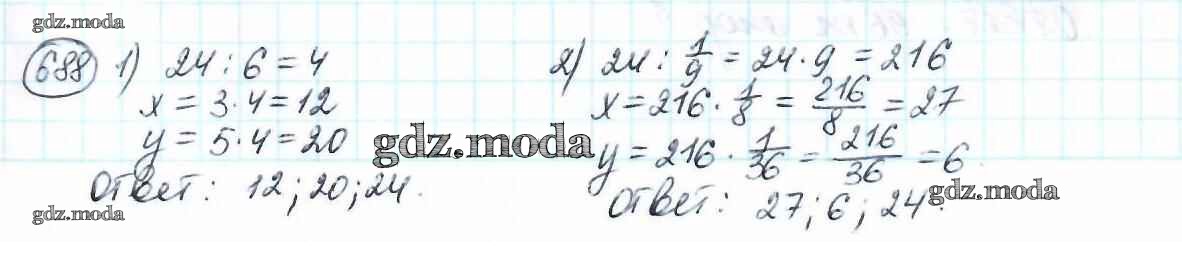 gdz.moda
688 1) 24 : 6 = 4
x = 3·4 = 12
y = 5·4 = 20
Ответ: 12; 20; 24.
gdz.moda
2) 24 : 1/9 = 24·9 = 216
x = 216 · 1/8 = 216/8 = 27
y = 216 · 1/36 = 216/36 = 6.
Ответ: 27; 6; 24.
gdz.moda
gdz.moda
gdz.moda
gdz.moda
gdz.moda